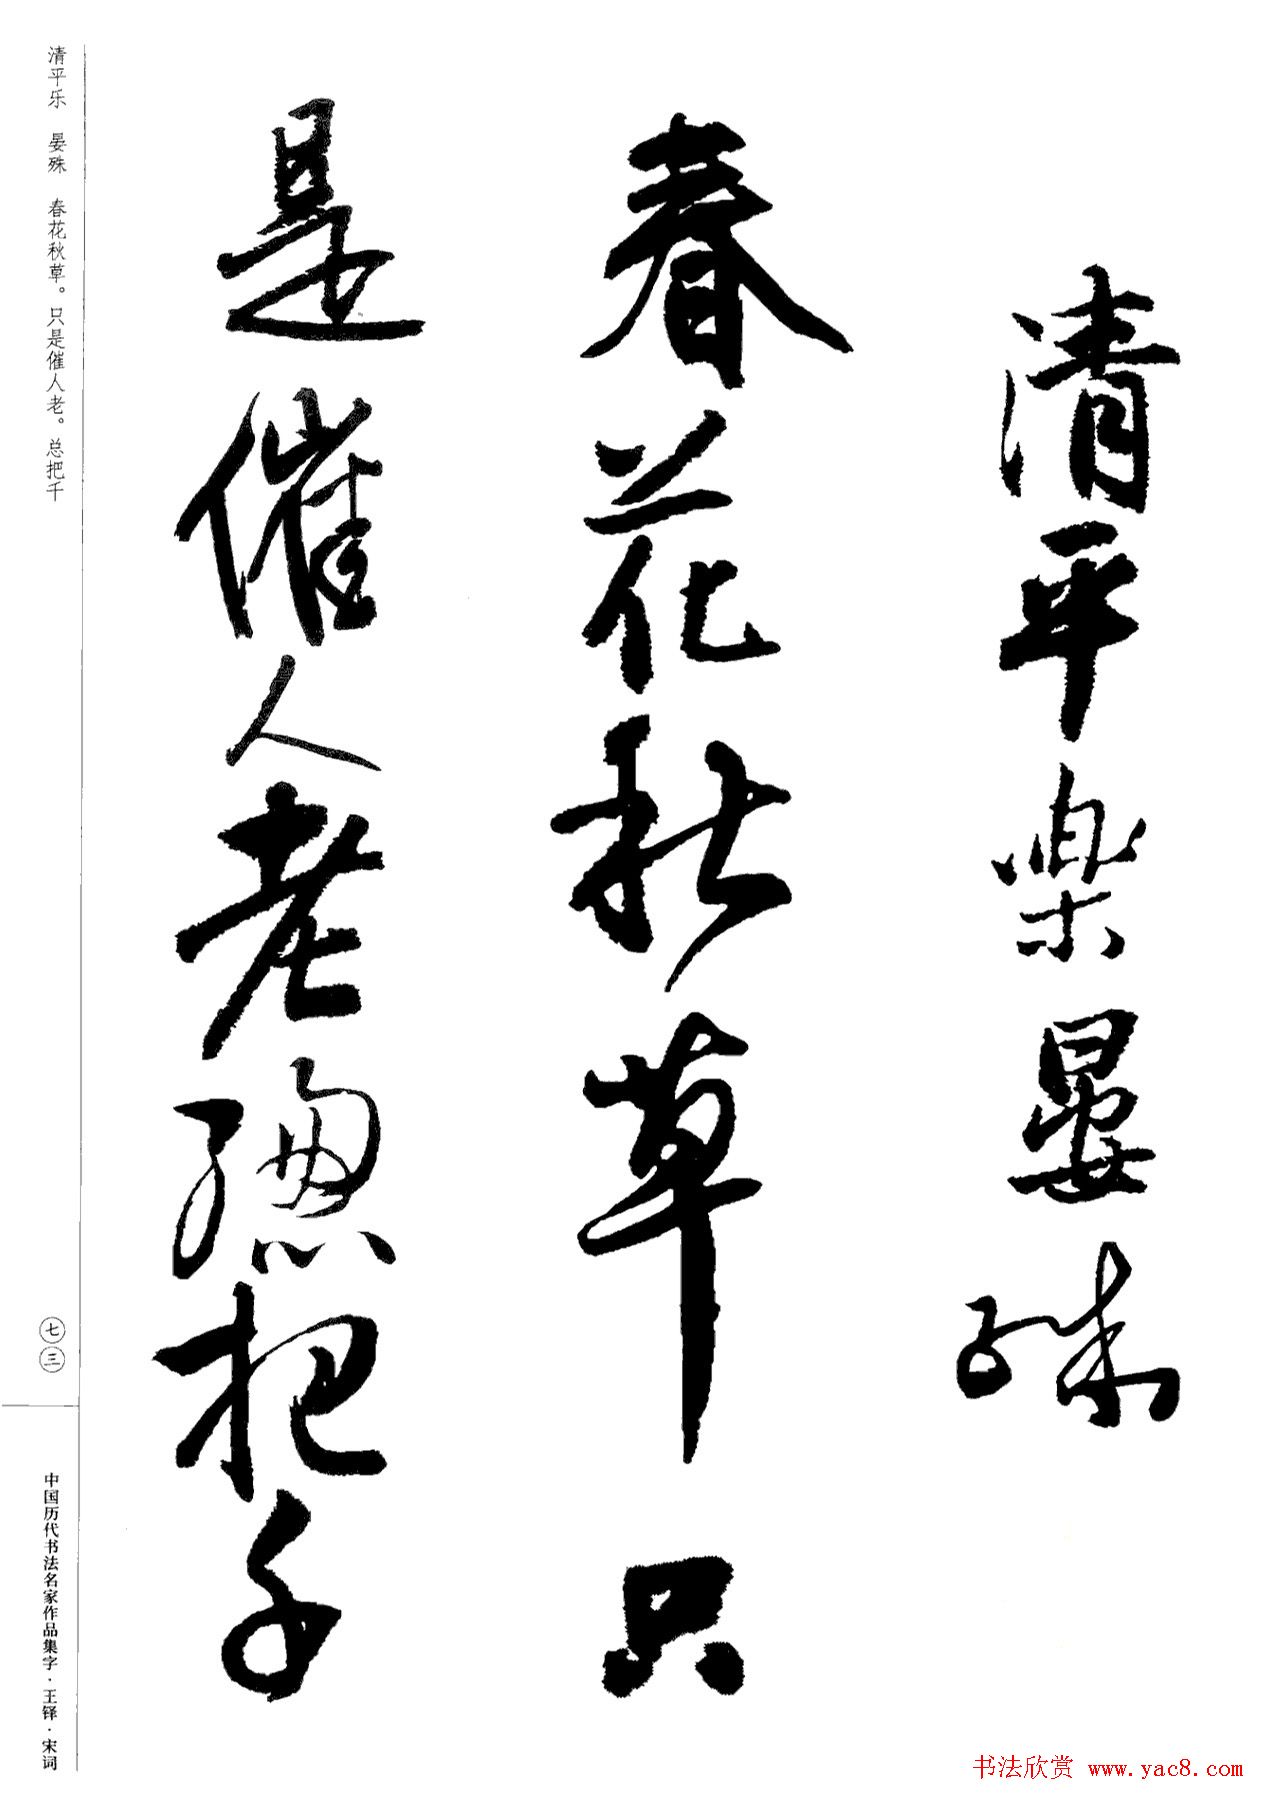 清平樂晏殊
春花秋草只
是催人老總把千
清平乐 晏殊 春花秋草。只是催人老。总把千
七三
中国历代书法名家作品集字·王铎·宋词
书法欣赏 www.yac8.com